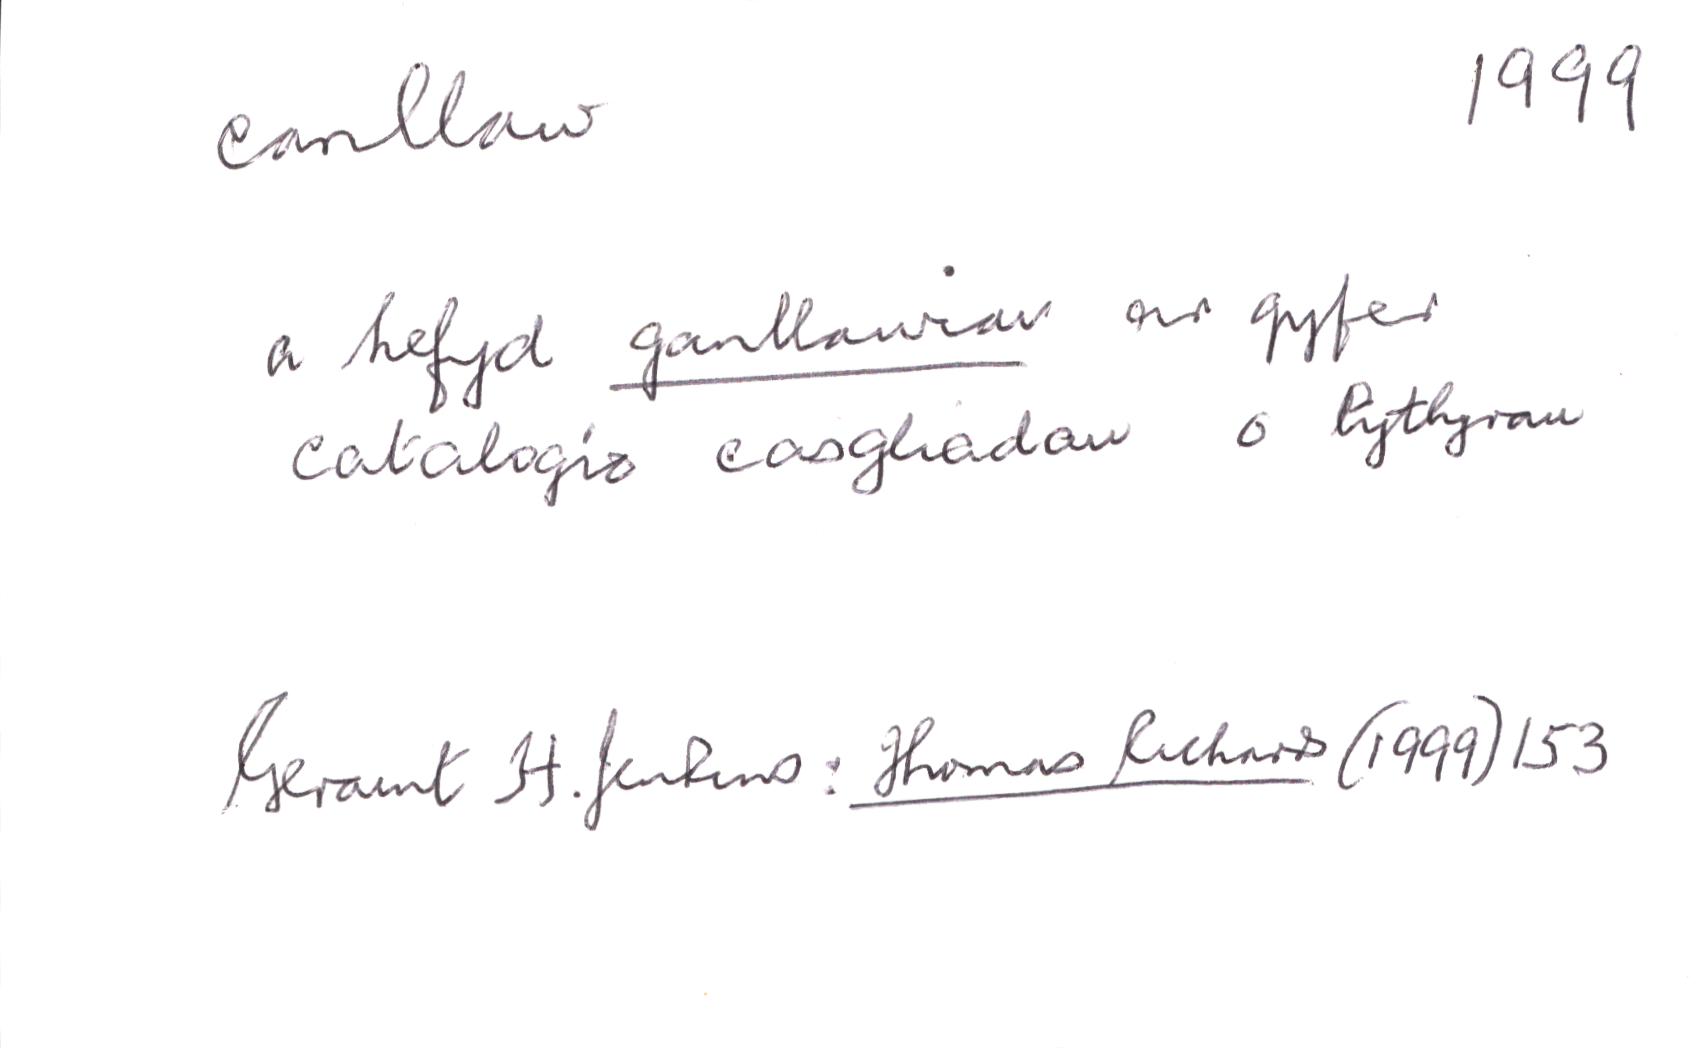 canllaw 1999
a hefyd ganllawiau ar gyfer
catalogio casgliadau o lythyrau
Geraint H. Jenkins: Thomas Richards (1999) 153